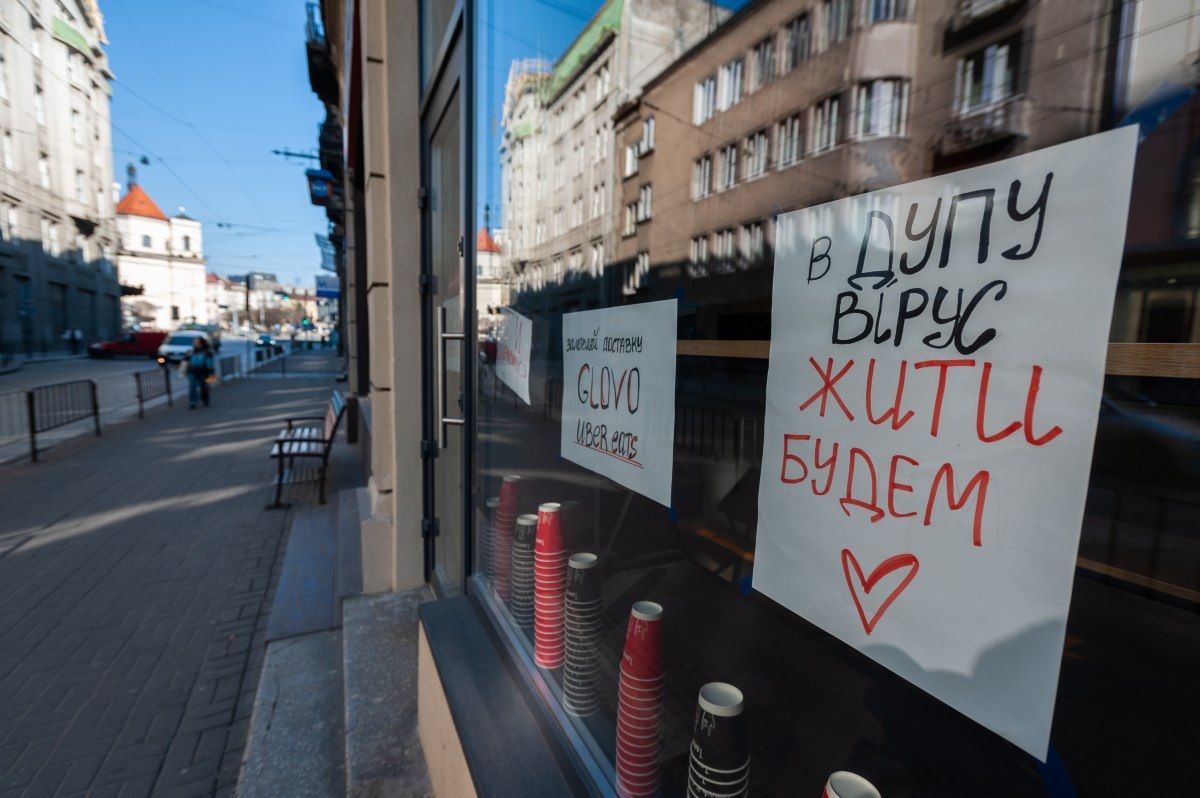 замовляй доставку
GLOVO
UBER eats
В ДУПУ
ВІРУС
ЖИТИ
БУДЕМ